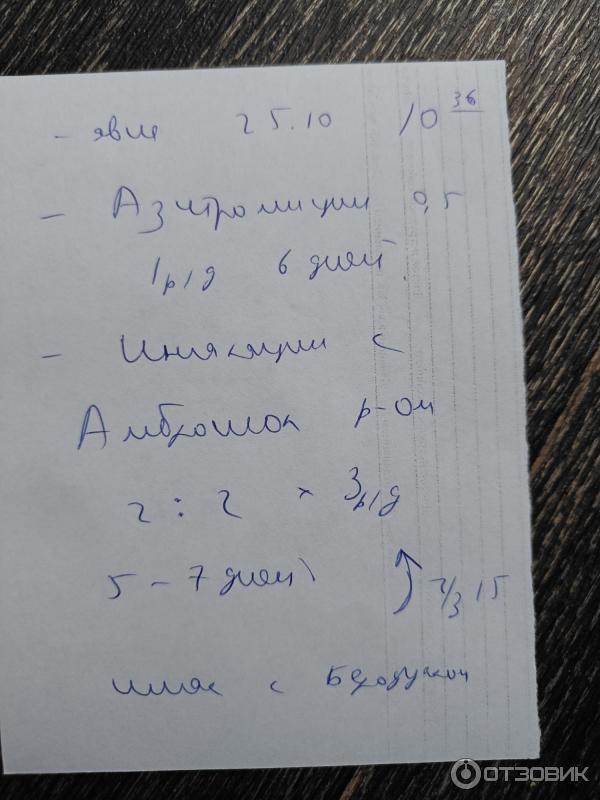 - явка 25.10 10 36
- Азитромицин 0,5
1 р/д 6 дней.
- Ингаляции с
Амброксол р-ом
2 : 2 × 3 р/д
5 - 7 дней
ч/з 15
ингал с Беродуалом
ОТЗОВИК